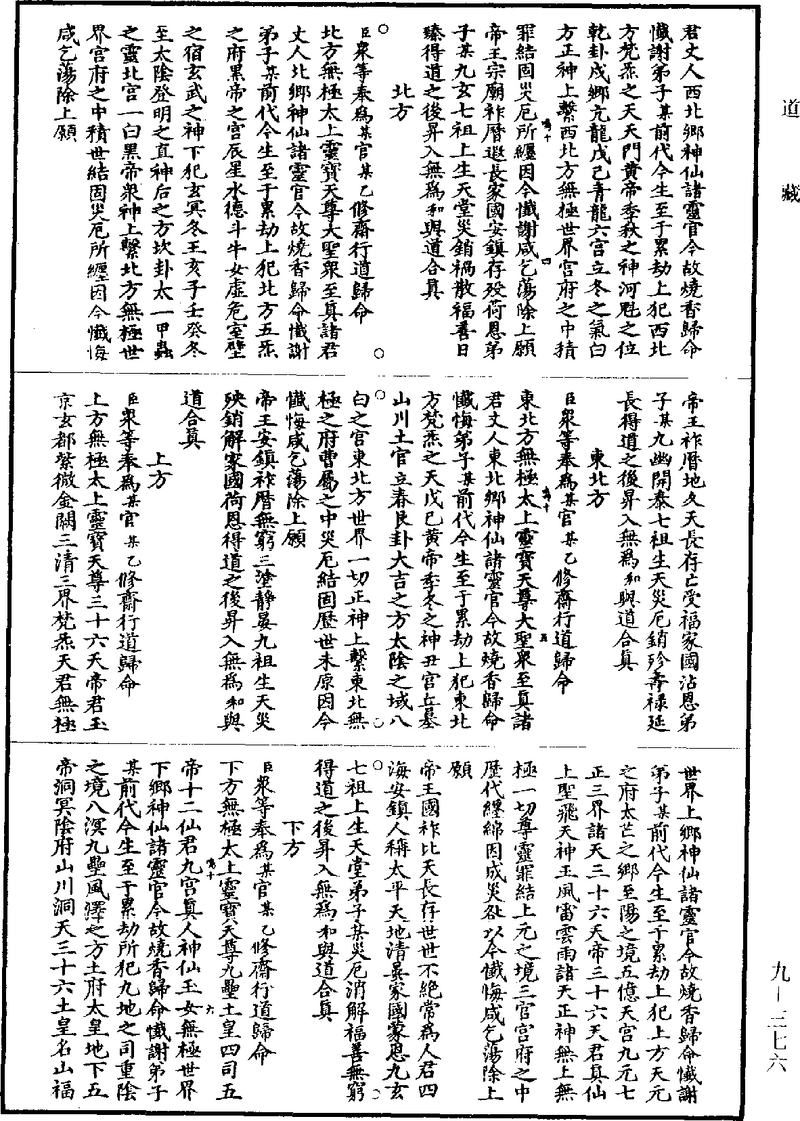 道藏
君丈人西北鄉神仙諸靈官今故燒香歸命
懺謝弟子某前代今生至于累劫上犯西北
方梵炁之天天門黃帝季秋之神河魁之位
乾卦戌鄉亢龍戊己青龍六宮立冬之氣白
方正神上繫西北方無極世界宮府之中積
罪結固災厄所纏因今懺謝咸乞蕩除上願
帝王宗廟祚曆遐長家國安鎮存歿荷恩弟
子某九玄七祖上生天堂災銷禍散福善日
臻得道之後昇入無為和與道合真
北方
臣眾等奉為某官某乙修齋行道歸命
北方無極太上靈寶天尊大聖眾至真諸君
丈人北鄉神仙諸靈官今故燒香歸命懺謝
弟子某前代今生至于累劫上犯北方五炁
之府黑帝之宮辰星水德斗牛女虛危室壁
之宿玄武之神下犯玄冥冬王亥子壬癸冬
至太陰登明之直神后之方坎卦太一甲蟲
之靈北宮一白黑帝眾神上繫北方無極世
界宮府之中積世結固災厄所纏因今懺悔
咸乞蕩除上願
帝王祚曆地久天長存亡受福家國沾恩弟
子某九幽開泰七祖生天災厄銷殄壽祿延
長得道之後昇入無為和與道合真
東北方
臣眾等奉為某官某乙修齋行道歸命
東北方無極太上靈寶天尊大聖眾至真諸
君丈人東北鄉神仙諸靈官今故燒香歸命
懺悔弟子某前代今生至于累劫上犯東北
方梵炁之天戊己黃帝季冬之神丑宮丘墓
山川土官立春艮卦大吉之方太陰之域八
白之宮東北方世界一切正神上繫東北無
極之府曹屬之中災厄結固歷世未原因今
懺悔咸乞蕩除上願
帝王安鎮祚曆無窮三塗靜晏九祖生天災
殃銷解家國荷恩得道之後昇入無為和與
道合真
上方
臣眾等奉為某官某乙修齋行道歸命
上方無極太上靈寶天尊三十六天帝君玉
京玄都紫微金闕三清三界梵炁天君無極
世界上鄉神仙諸靈官今故燒香歸命懺謝
弟子某前代今生至于累劫上犯上方天元
之府太芒之鄉至陽之境五億天宮九元七
正三界諸天三十六天帝三十六天君真仙
上聖飛天神王風雷雲雨諸天正神無上無
極一切尊靈罪結上元之境三官宮府之中
歷代纏綿因成災咎以今懺悔咸乞蕩除上
願
帝王國祚比天長存世世不絕常為人君四
海安鎮人稱太平天地清晏家國蒙恩九玄
七祖上生天堂弟子某災厄消解福善無窮
得道之後昇入無為和與道合真
下方
臣眾等奉為某官某乙修齋行道歸命
下方無極太上靈寶天尊九壘土皇四司五
帝十二仙君九宮真人神仙玉女無極世界
下鄉神仙諸靈官今故燒香歸命懺謝弟子
某前代今生至于累劫所犯九地之司重陰
之境八溟九壘風澤之方土府太皇地下五
帝洞冥陰府山川洞天三十六土皇名山福
九－三七六